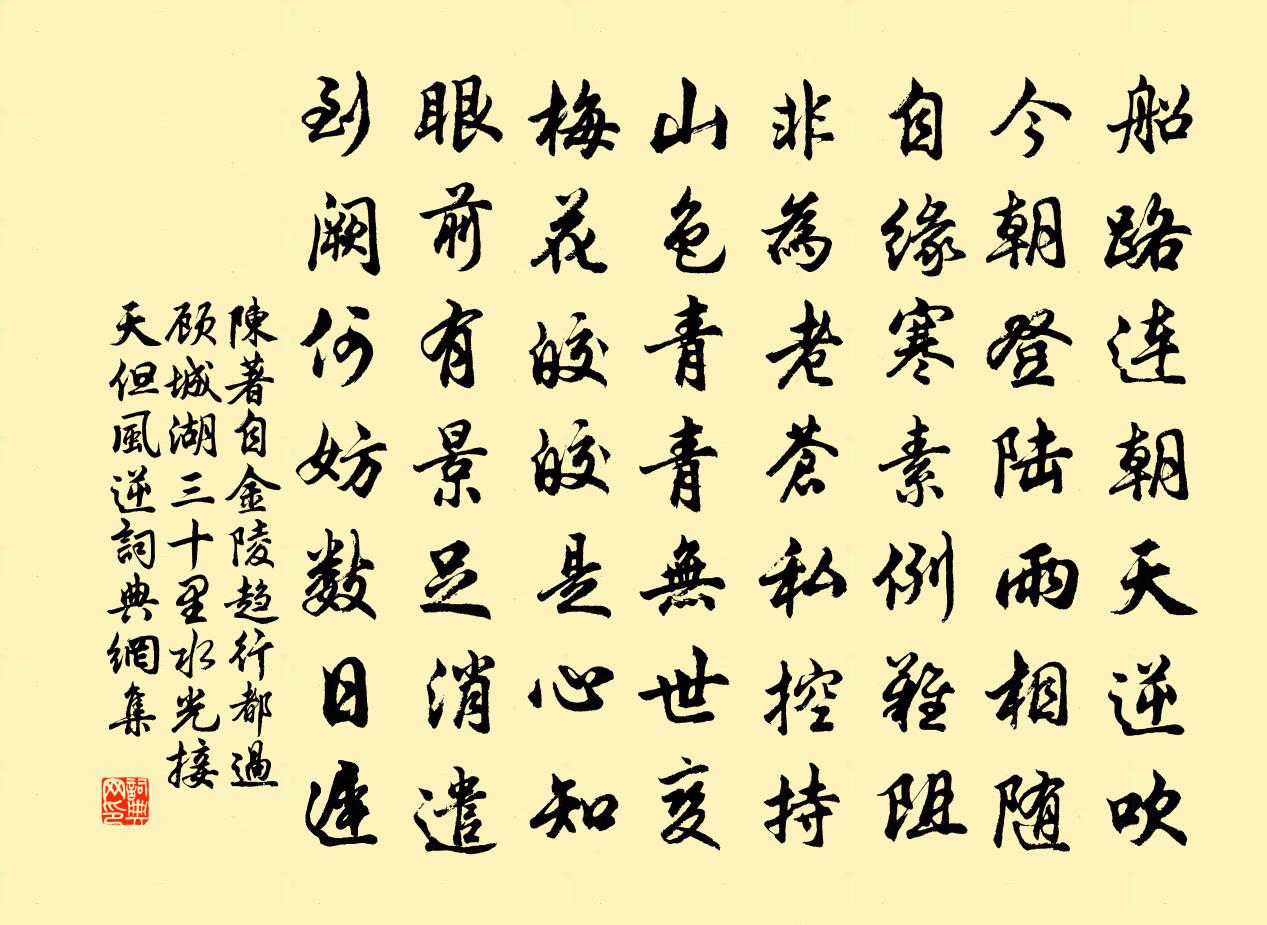 船路連朝天逆吹
今朝登陆雨相随
自缘寒素例難阻
非為老蒼私控持
山色青青無世变
梅花皎皎是心知
眼前有景足消遣
到阙何妨数日遲
陳著自金陵趋行都過
顾城湖三十里水光接
天但風逆詞典網集
詞典网印